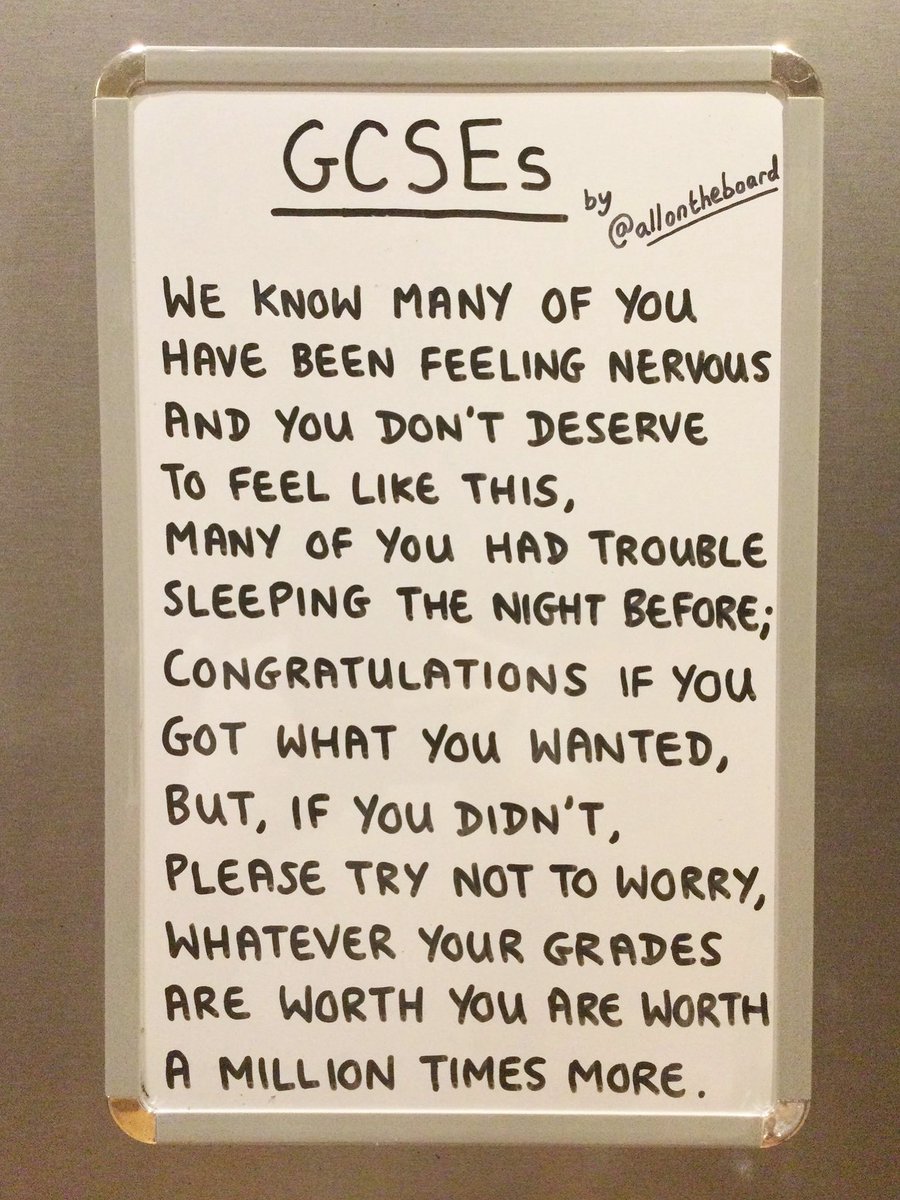 GCSEs
by @allontheboard
WE KNOW MANY OF YOU
HAVE BEEN FEELING NERVOUS
AND YOU DON'T DESERVE
TO FEEL LIKE THIS,
MANY OF YOU HAD TROUBLE
SLEEPING THE NIGHT BEFORE;
CONGRATULATIONS IF YOU
GOT WHAT YOU WANTED,
BUT, IF YOU DIDN'T,
PLEASE TRY NOT TO WORRY,
WHATEVER YOUR GRADES
ARE WORTH YOU ARE WORTH
A MILLION TIMES MORE.